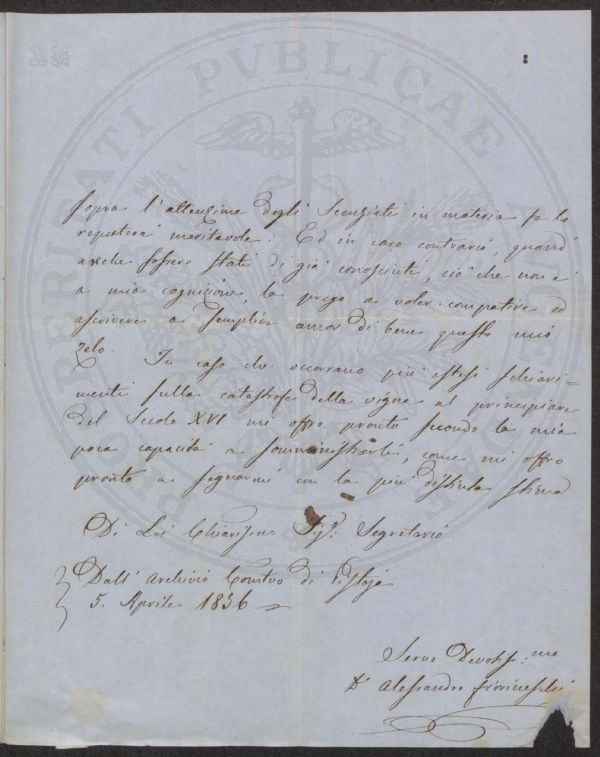 PROSPERITATI PVBLICAE AVGENDAE
sopra l'attenzione degli Scenziati in materia se lo
reputerà meritavole. Ed in caso contrario, quand'
anche fossero stati di già conosciuti, ciò che non è
a mia cognizione, la prego a voler compatire ed
ascrivere a semplice amor di bene questo mio
zelo. In caso che occorrano più estesi schiari-
menti sulla catastrofe della vigna al principiare
del Secolo XVI mi offro pronto secondo la mia
poca capacità a somministrarli, come mi offro
pronto a segnarmi con la più distinta stima
Di Lei Chiariss. Sigr. Segretario
Dall' Archivio Comtvo di Pistoja
5. Aprile 1836
Servo Devotiss:mo
Dr Alessandro